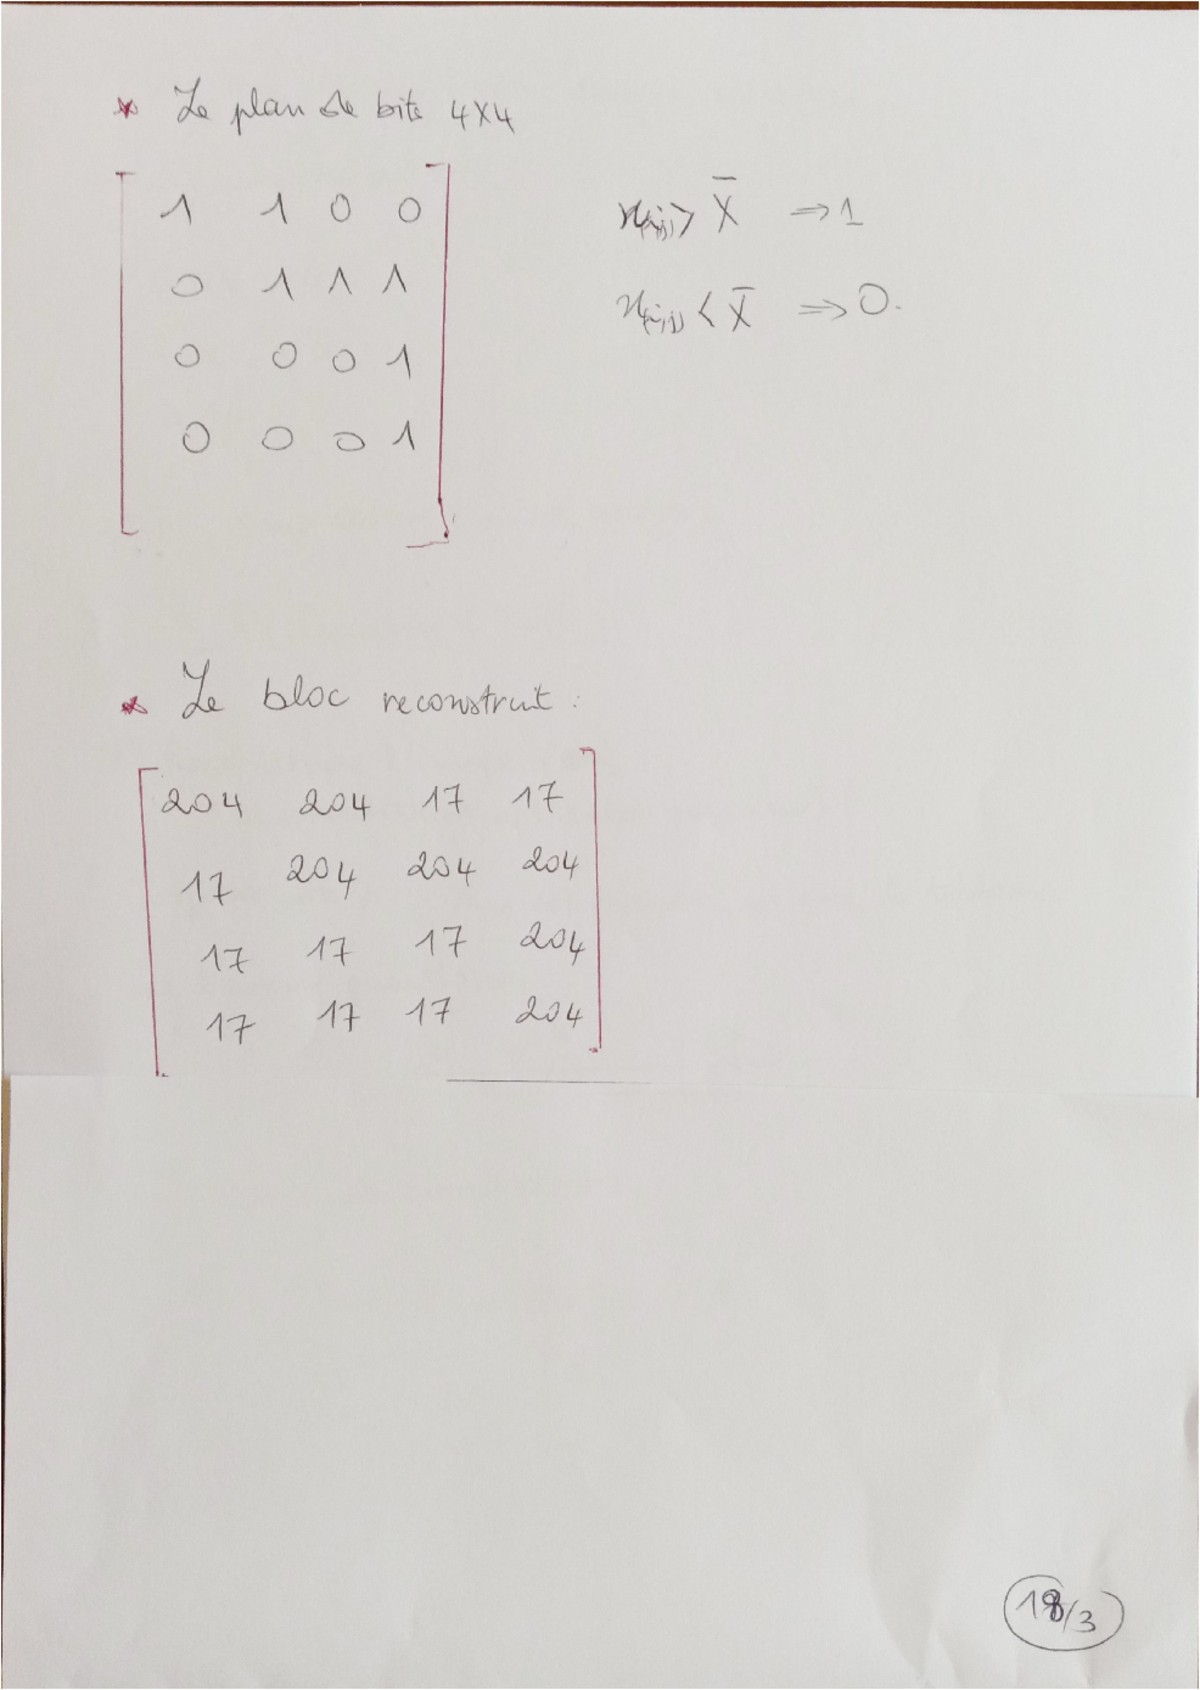 * Le plan de bits 4x4
1 1 0 0
0 1 1 1
0 0 0 1
0 0 0 1
x(i,j) > X̄ ⇒ 1
x(i,j) < X̄ ⇒ 0.
* Le bloc reconstruit :
204 204 17 17
17 204 204 204
17 17 17 204
17 17 17 204
18/3